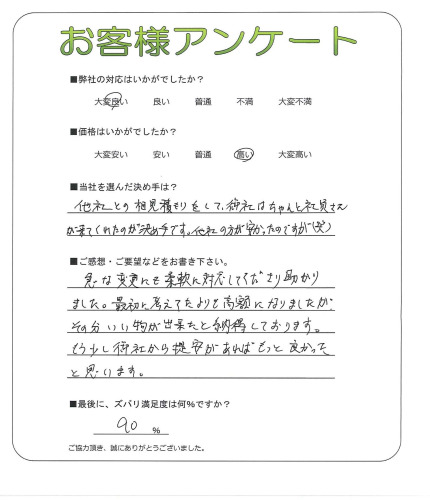 お客様アンケート
■弊社の対応はいかがでしたか?
大変良い 良い 普通 不満 大変不満
■価格はいかがでしたか?
大変安い 安い 普通 高い 大変高い
■当社を選んだ決め手は?
他社との相見積もりをして、御社はちゃんと社員さん
が来てくれたのが決め手です。他社の方が安かったのですが(笑)
■ご感想・ご要望などをお書き下さい。
急な変更にも柔軟に対応してくださり助かり
ました。最初に考えてたよりも高額になりましたが、
その分いい物が出来たと納得しております。
もう少し御社から提案があればもっと良かった
と思います。
■最後に、ズバリ満足度は何%ですか?
90 %
ご協力頂き、誠にありがとうございました。